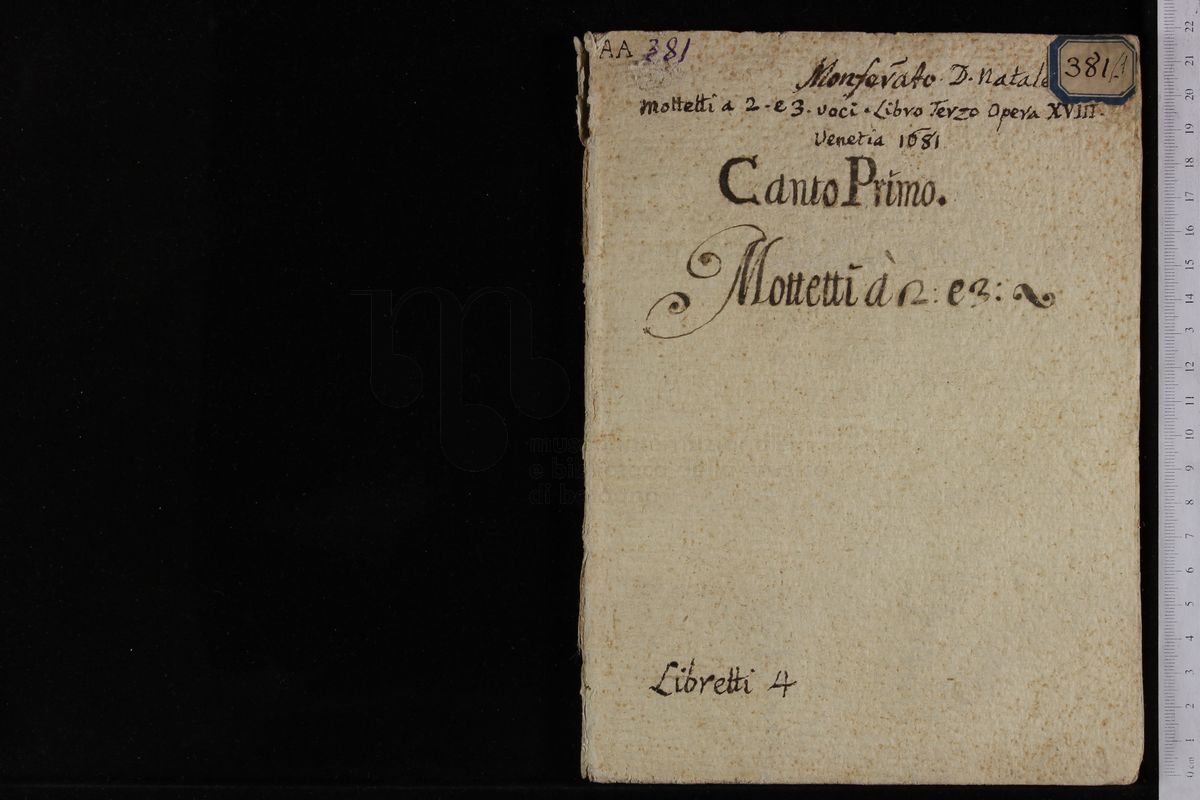 AA 381
381/1
Monferrato D. Natale
mottetti a 2. e 3. voci. Libro Terzo Opera XVIII.
Venetia 1681
Canto Primo.
Mottetti à 2: e 3:
Libretti 4
22
21
20
19
18
17
16
15
14
13
12
11
10
9
8
7
6
5
4
3
2
1
0 cm